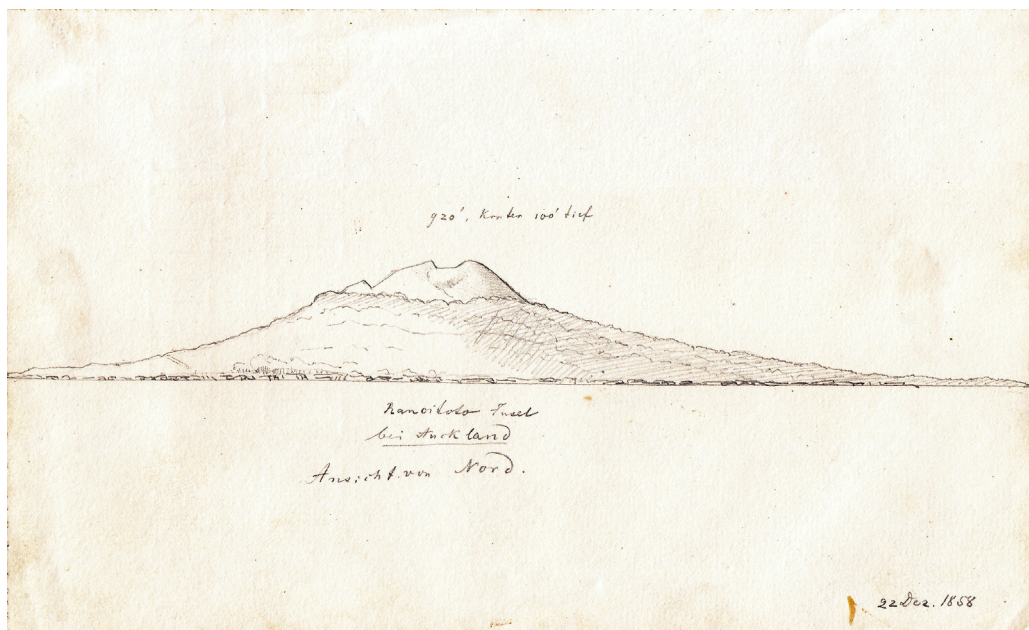 920', Krater 100' tief
Rangitoto Insel
bei Auckland
Ansicht von Nord.
22 Dez. 1858